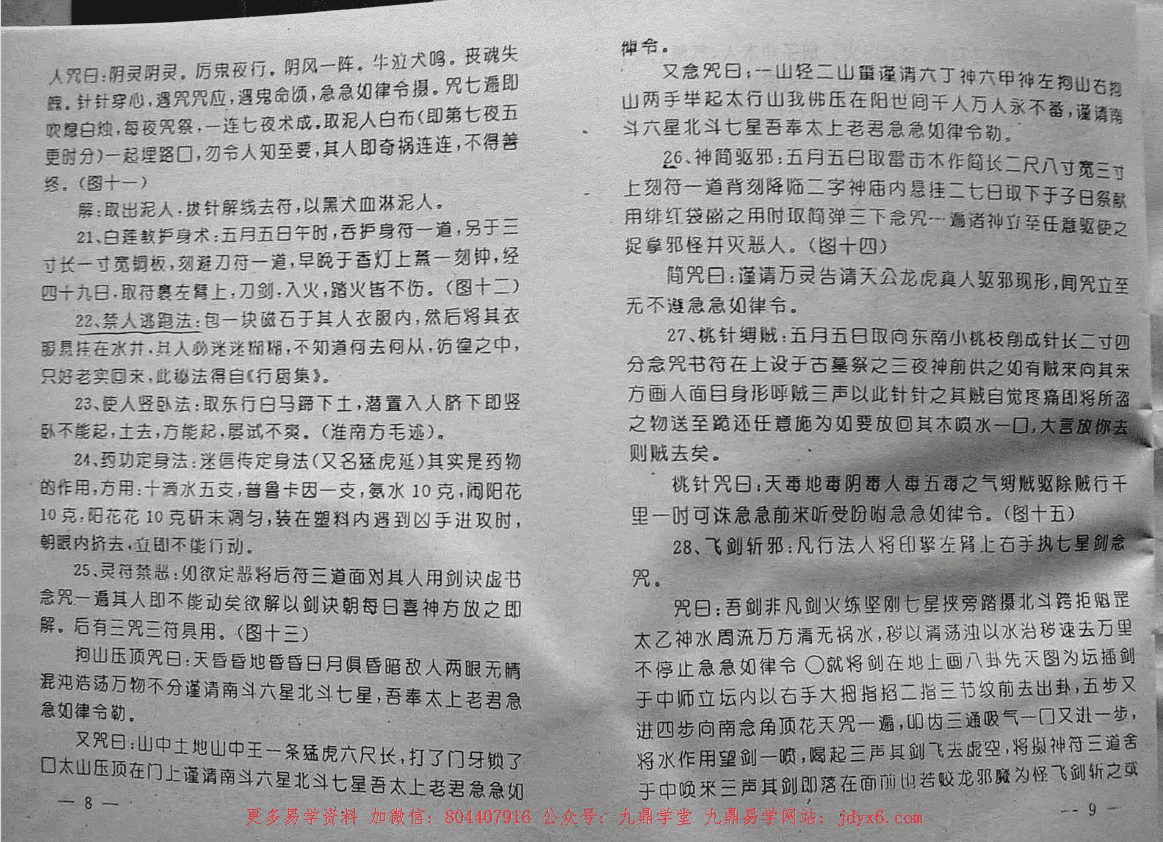 人咒曰:阴灵阴灵。厉鬼夜行。阴风一阵。牛泣犬鸣。丧魂失
魄。针针穿心,遇咒咒应,遇鬼命顷,急急如律令摄。咒七遍即
吹熄白烛,每夜咒祭,一连七夜术成。取泥人白布(即第七夜五
更时分)一起埋路口,勿令人知至要,其人即奇祸连连,不得善
终。(图十一)
解:取出泥人·拔针解线去符,以黑犬血淋泥人。
21、白莲教护身术:五月五日午时,吞护身符一道,另于三
寸长一寸宽铜板,刻避刀符一道,早晚于香灯上熏一刻钟,经
四十九日,取符裹左臂上,刀剑·入火,踏火皆不伤。(图十二)
22、禁人逃跑法:包一块磁石于其人衣服内,然后将其衣
服悬挂在水井,其人必迷迷糊糊,不知道何去何从,彷徨之中,
只好老实回来,此秘法得自《行厨集》。
23、使人竖卧法:取东行白马蹄下土,潜置入人脐下即竖
卧不能起,土去,方能起,屡试不爽。(淮南方毛迹)。
24、药功定身法:迷信传定身法(又名猛虎延)其实是药物
的作用,方用:十滴水五支,普鲁卡因一支,氨水10克,闹阳花
10克,阳花花10克研末凋匀,装在塑料内遇到凶手进攻时,
朝眼内挤去,立即不能行动。
25、灵符禁恶:如欲定恶将后符三道面对其人用剑诀虚书
念咒一遍其人即不能动矣欲解以剑诀朝每日喜神方放之即
解。后有三咒三符具用。(图十三)
拘山压顶咒曰:天昏昏地昏昏日月俱昏暗敌人两眼无睛
混沌浩荡万物不分谨请南斗六星北斗七星,吾奉太上老君急
急如律令勒。
又咒曰:山中土地山中王一条猛虎六尺长,打了门牙锁了
口太山压顶在门上谨请南斗六星北斗七星吾太上老君急急如
— 8 —
律令。
又念咒曰;一山轻二山重谨请六丁神六甲神左拘山右拘
山两手举起太行山我佛压在阳世间千人万人永不番,谨请南
斗六星北斗七星吾奉太上老君急急如律令勒。
26、神简驱邪:五月五日取雷击木作简长二尺八寸宽三寸
上刻符一道背刻降临二字神庙内悬挂二七日取下于子日祭献
用绯红袋盛之用时取简弹三下念咒一遍诸神立至任意驱使之
捉拿邪怪并灭恶人。(图十四)
简咒曰:谨请万灵告请天公龙虎真人驱邪现形,闻咒立至
无不遵急急如律令。
27、桃针缚贼:五月五日取向东南小桃枝削成针长二寸四
分念咒书符在上设于古墓祭之三夜神前供之如有贼来向其来
方画人面目身形呼贼三声以此针针之其贼自觉疼痛即将所盗
之物送至跪还任意施为如要放回其木喷水一口,大言放你去
则贼去矣。
桃针咒曰:天毒地毒阴毒人毒五毒之气缚贼驱除贼行千
里一时可诛急急前来听受吩咐急急如律令。(图十五)
28、飞剑斩邪:凡行法人将印擎左臂上右手执七星剑念
咒。
咒曰:吾剑非凡剑火练坚刚七星挟旁踏摄北斗跨拒魁罡
太乙神水周流万方清无祸水,秽以清荡浊以水治秽速去万里
不停止急急如律令 〇就将剑在地上画八卦先天图为坛插剑
于中师立坛内以右手大拇指招二指三节纹前去出卦,五步又
进四步向南念角顶花天咒一遍,叩齿三通吸气一口又进一步,
将水作用望剑一喷,喝起三声其剑飞去虚空,将摄神符三道舍
于中唤来三声其剑即落在面前也若蛟龙邪魔为怪飞剑斩之或
— 9 —
更多易学资料 加微信: 804407916 公众号: 九鼎学堂 九鼎易学网站: jdyx6.com